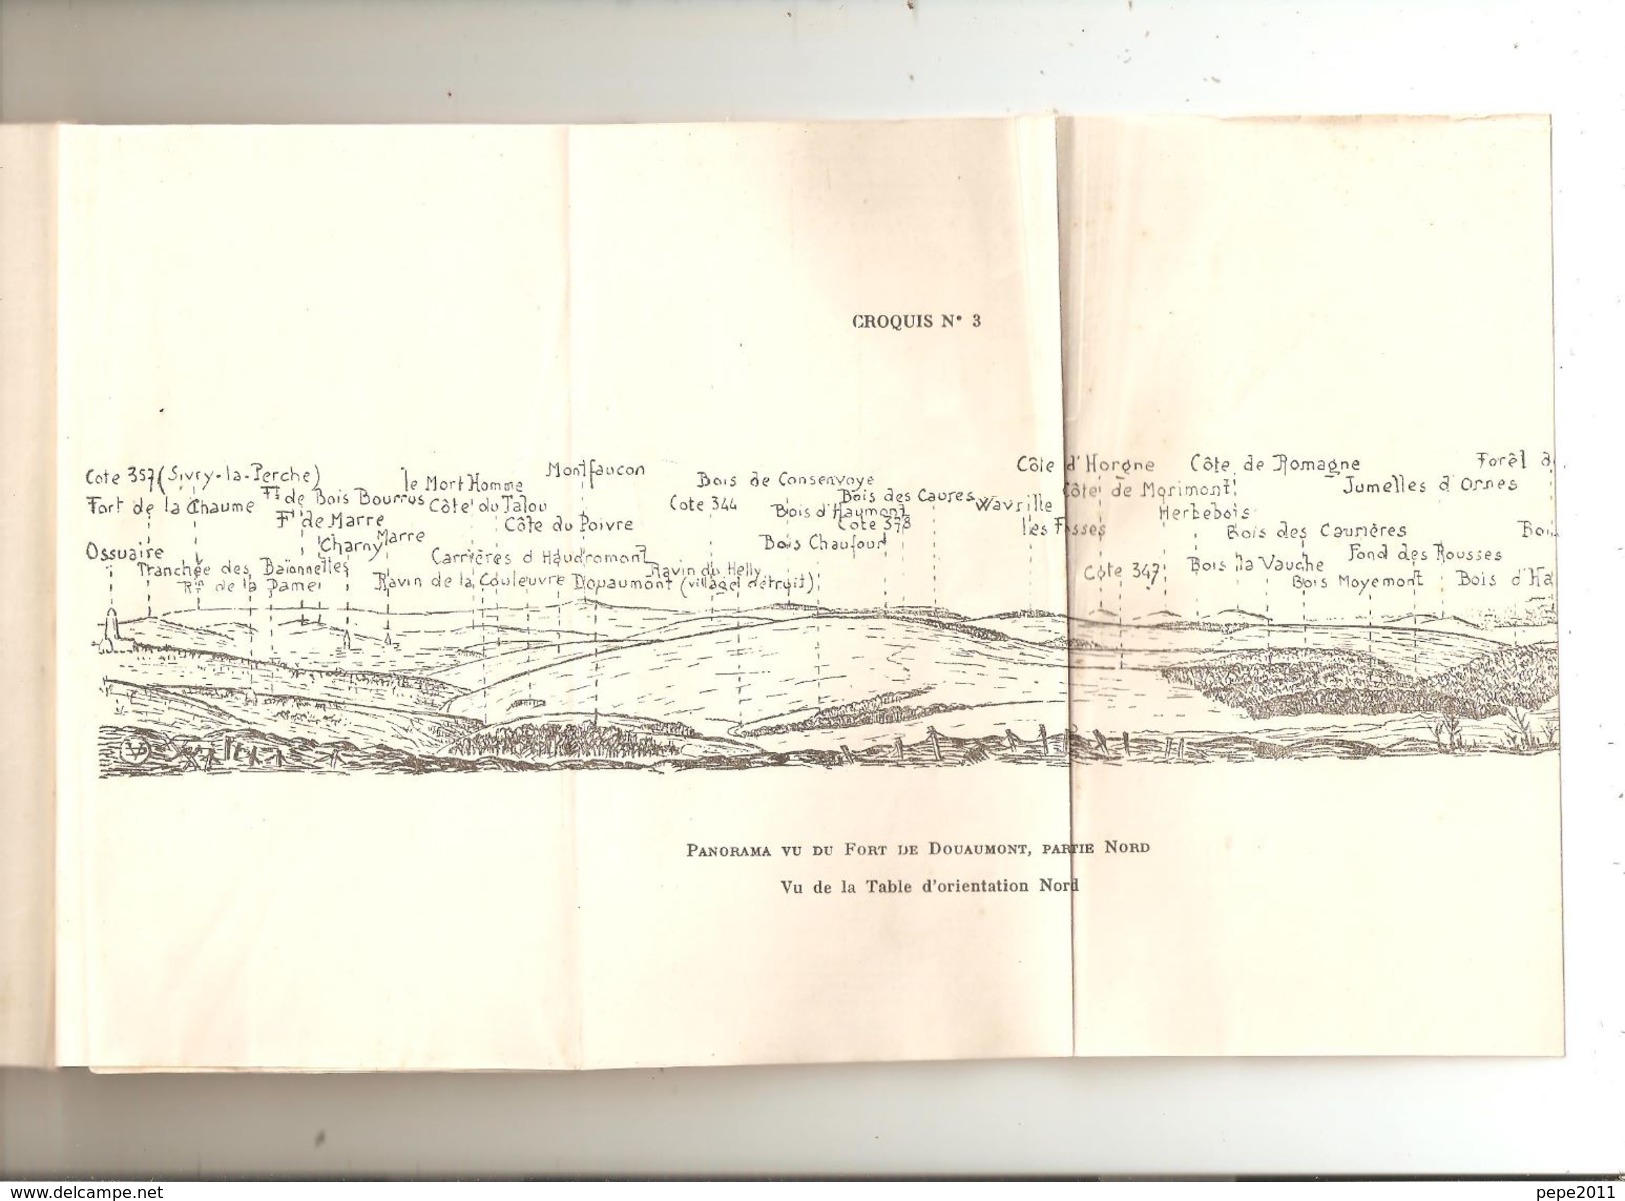 CROQUIS N° 3
Cote 357 (Sivry-la-Perche)
Fort de la Chaume
Ft de Bois Bourrus
Ft de Marre
Charny
Marre
Ossuaire
Tranchée des Baïonnettes
Rin de la Dame
le Mort Homme
Côte du Talou
Montfaucon
Côte du Poivre
Carrières d'Haudromont
Ravin de la Couleuvre
Ravin du Helly
Douaumont (village détruit)
Bois de Consenvoye
Cote 344
Bois des Caures
Bois d'Haumont
Cote 378
Bois Chaufour
Wavrille
Côte d'Horgne
Côte de Morimont
les Fosses
Cote 347
Côte de Romagne
Herbebois
Bois la Vauche
Bois des Caurières
Jumelles d'Ornes
Fond des Rousses
Bois Moyemont
Forêt d
Boi
Bois d'Ha
PANORAMA VU DU FORT DE DOUAUMONT, PARTIE NORD
Vu de la Table d'orientation Nord
www.delcampe.net
pepe2011